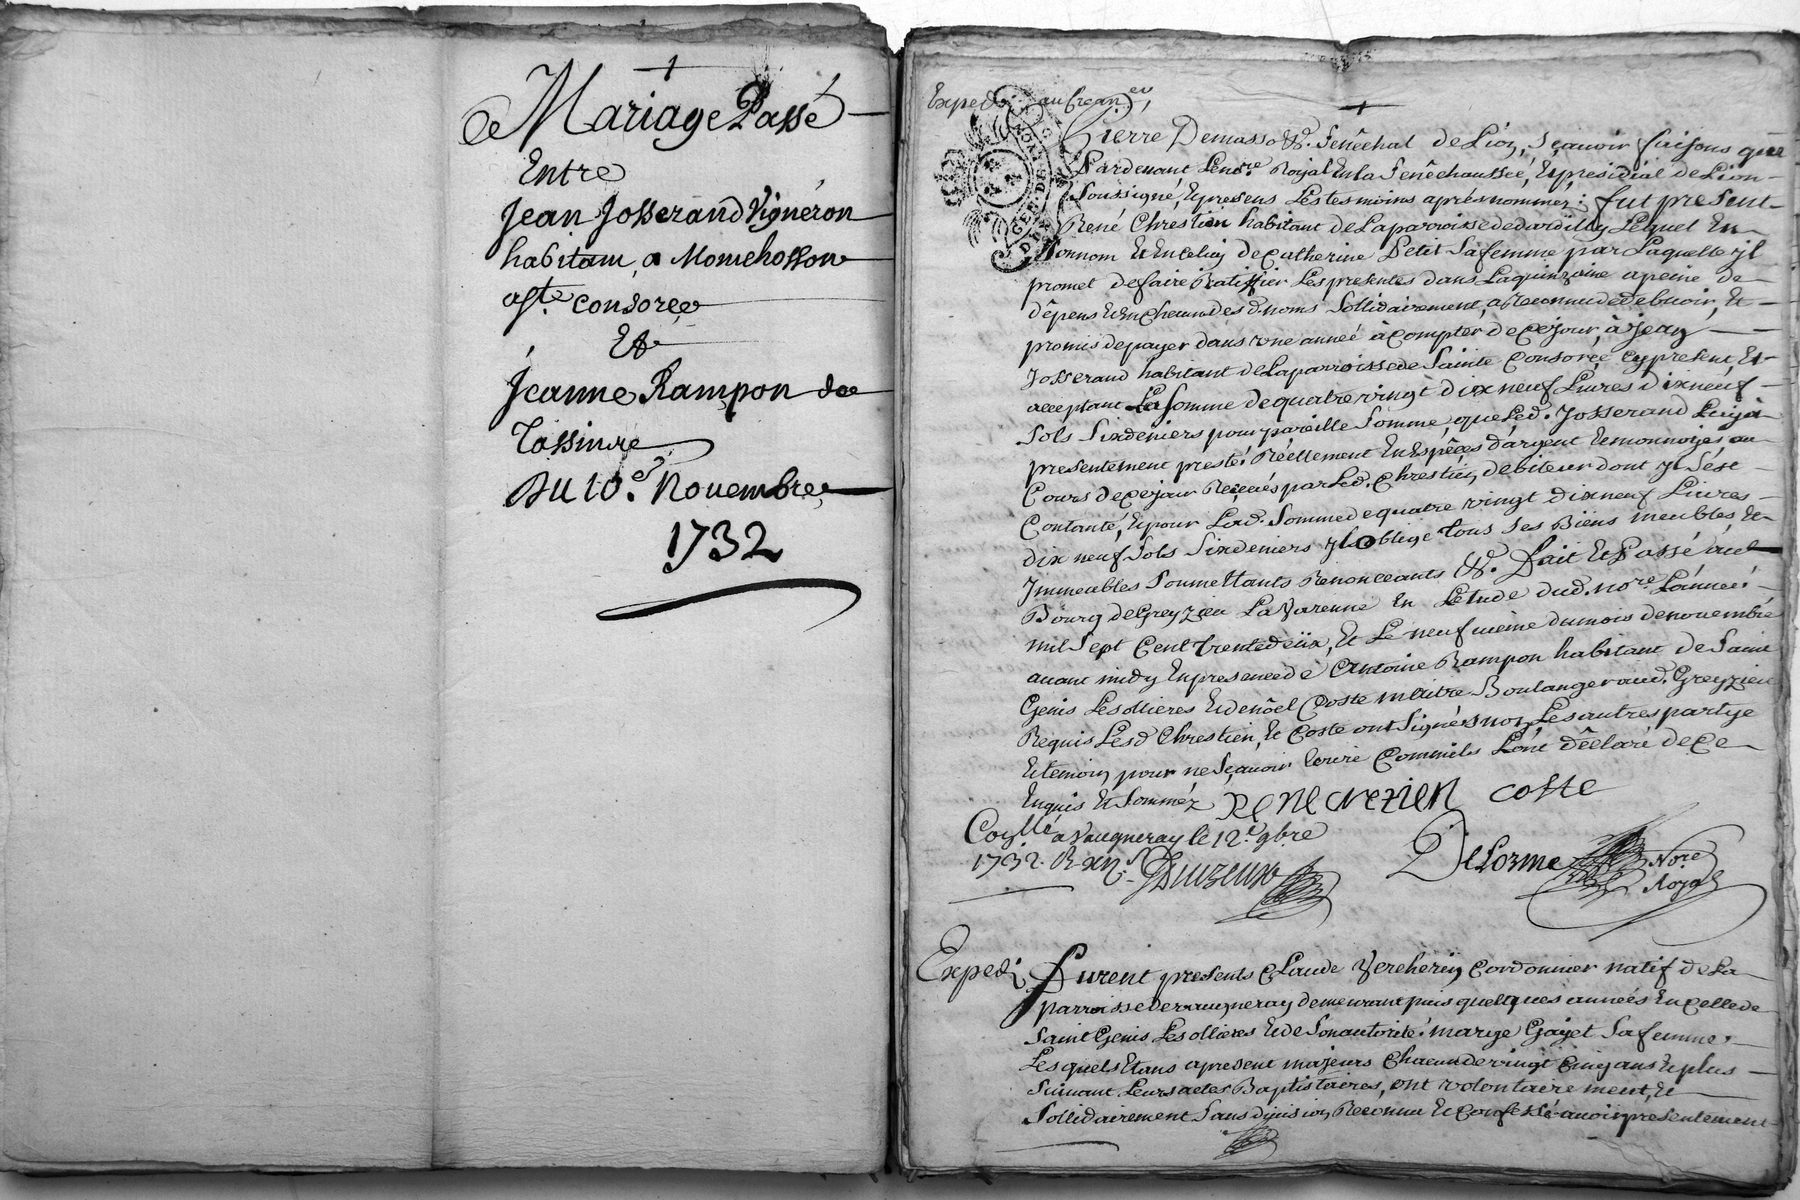 Mariage Passé
Entre
Jean Josserand Vigneron
habitant a Montchosson
Ste consorce
Et
Jeanne Rampon de
Tassin
Du 10.e Novembre
1732
Exped
Pierre Demasso &. Senêchal de Lion, sçavoir faisons que
Pardevant Le nore. Royal En la Senêchaussée, Et presidial de Lion
Soussigné, Et presens Les tesmoins aprés nommez ; fut present
René Chrestien habitant de La parroisse de dardilly Lequel En
Son nom Et En Celuy de Catherine Petit Sa femme par Laquelle jl
promet de faire Ratiffier Les presentes dans La quinzaine apeine de
dêpens Et En Chacun des d. noms Sollidairement, a Reconnu debvoir, Et
promis de payer dans une année à compter de Ce jour, à jean
Josserand habitant de La parroisse de Sainte Consorce Cy present Et
acceptant La Somme de quatre vingt dix neuf Livres dix neuf
Sols Six deniers pour pareille Somme que Led. Josserand Luy a
presentement presté Rèellement En Espêces d'argent Et monnoyes au
Cours de Ce jour Reçeues par Led. Chrestien debiteur dont jl S'est
Contanté, Et pour Lad. Somme de quatre vingt dix neuf Livres
dix neuf Sols Six deniers jl oblige tous Ses Biens meubles Et
Immeubles Soumettants Renonceants &. Fait Et Passé aud
Bourg de Greyzieu La Varenne En L'etude dud. nore L'année
mil Sept Cent trente deüx, Et Le neuf uième du mois de novembre
avant midy En presence de Antoine Rampon habitant de Saint
Genis Les ollieres Et de nôel Coste maitre Boulanger aud. Greyzieu
Requis Lesd Chrestien, Et Coste ont Signé, Et non Les autres partye
Et temoin pour ne Sçavoir Ecrire Comm'ils L'ont dêclaré de Ce
Enquis Et Sommez Rene crezien coste
Conllé a Vaugneray le 12.e 9bre
1732.
DeLorme Nore
Royal
Exped
Furent presents Claude Vercherin Cordonnier natif de La
parroisse de vaugneray demeurant puis quelques années En Celle de
Saint Genis Les ollieres Et de Son autorité marye Gayet Sa femme
Lesquels Etans apresent majeurs Chacun de vingt Cinq ans Et plus
Suivant Leurs actes Baptistaires, ont volontairement, Et
Sollidairement Sans division Reconnu Et Confessé avoir presentement